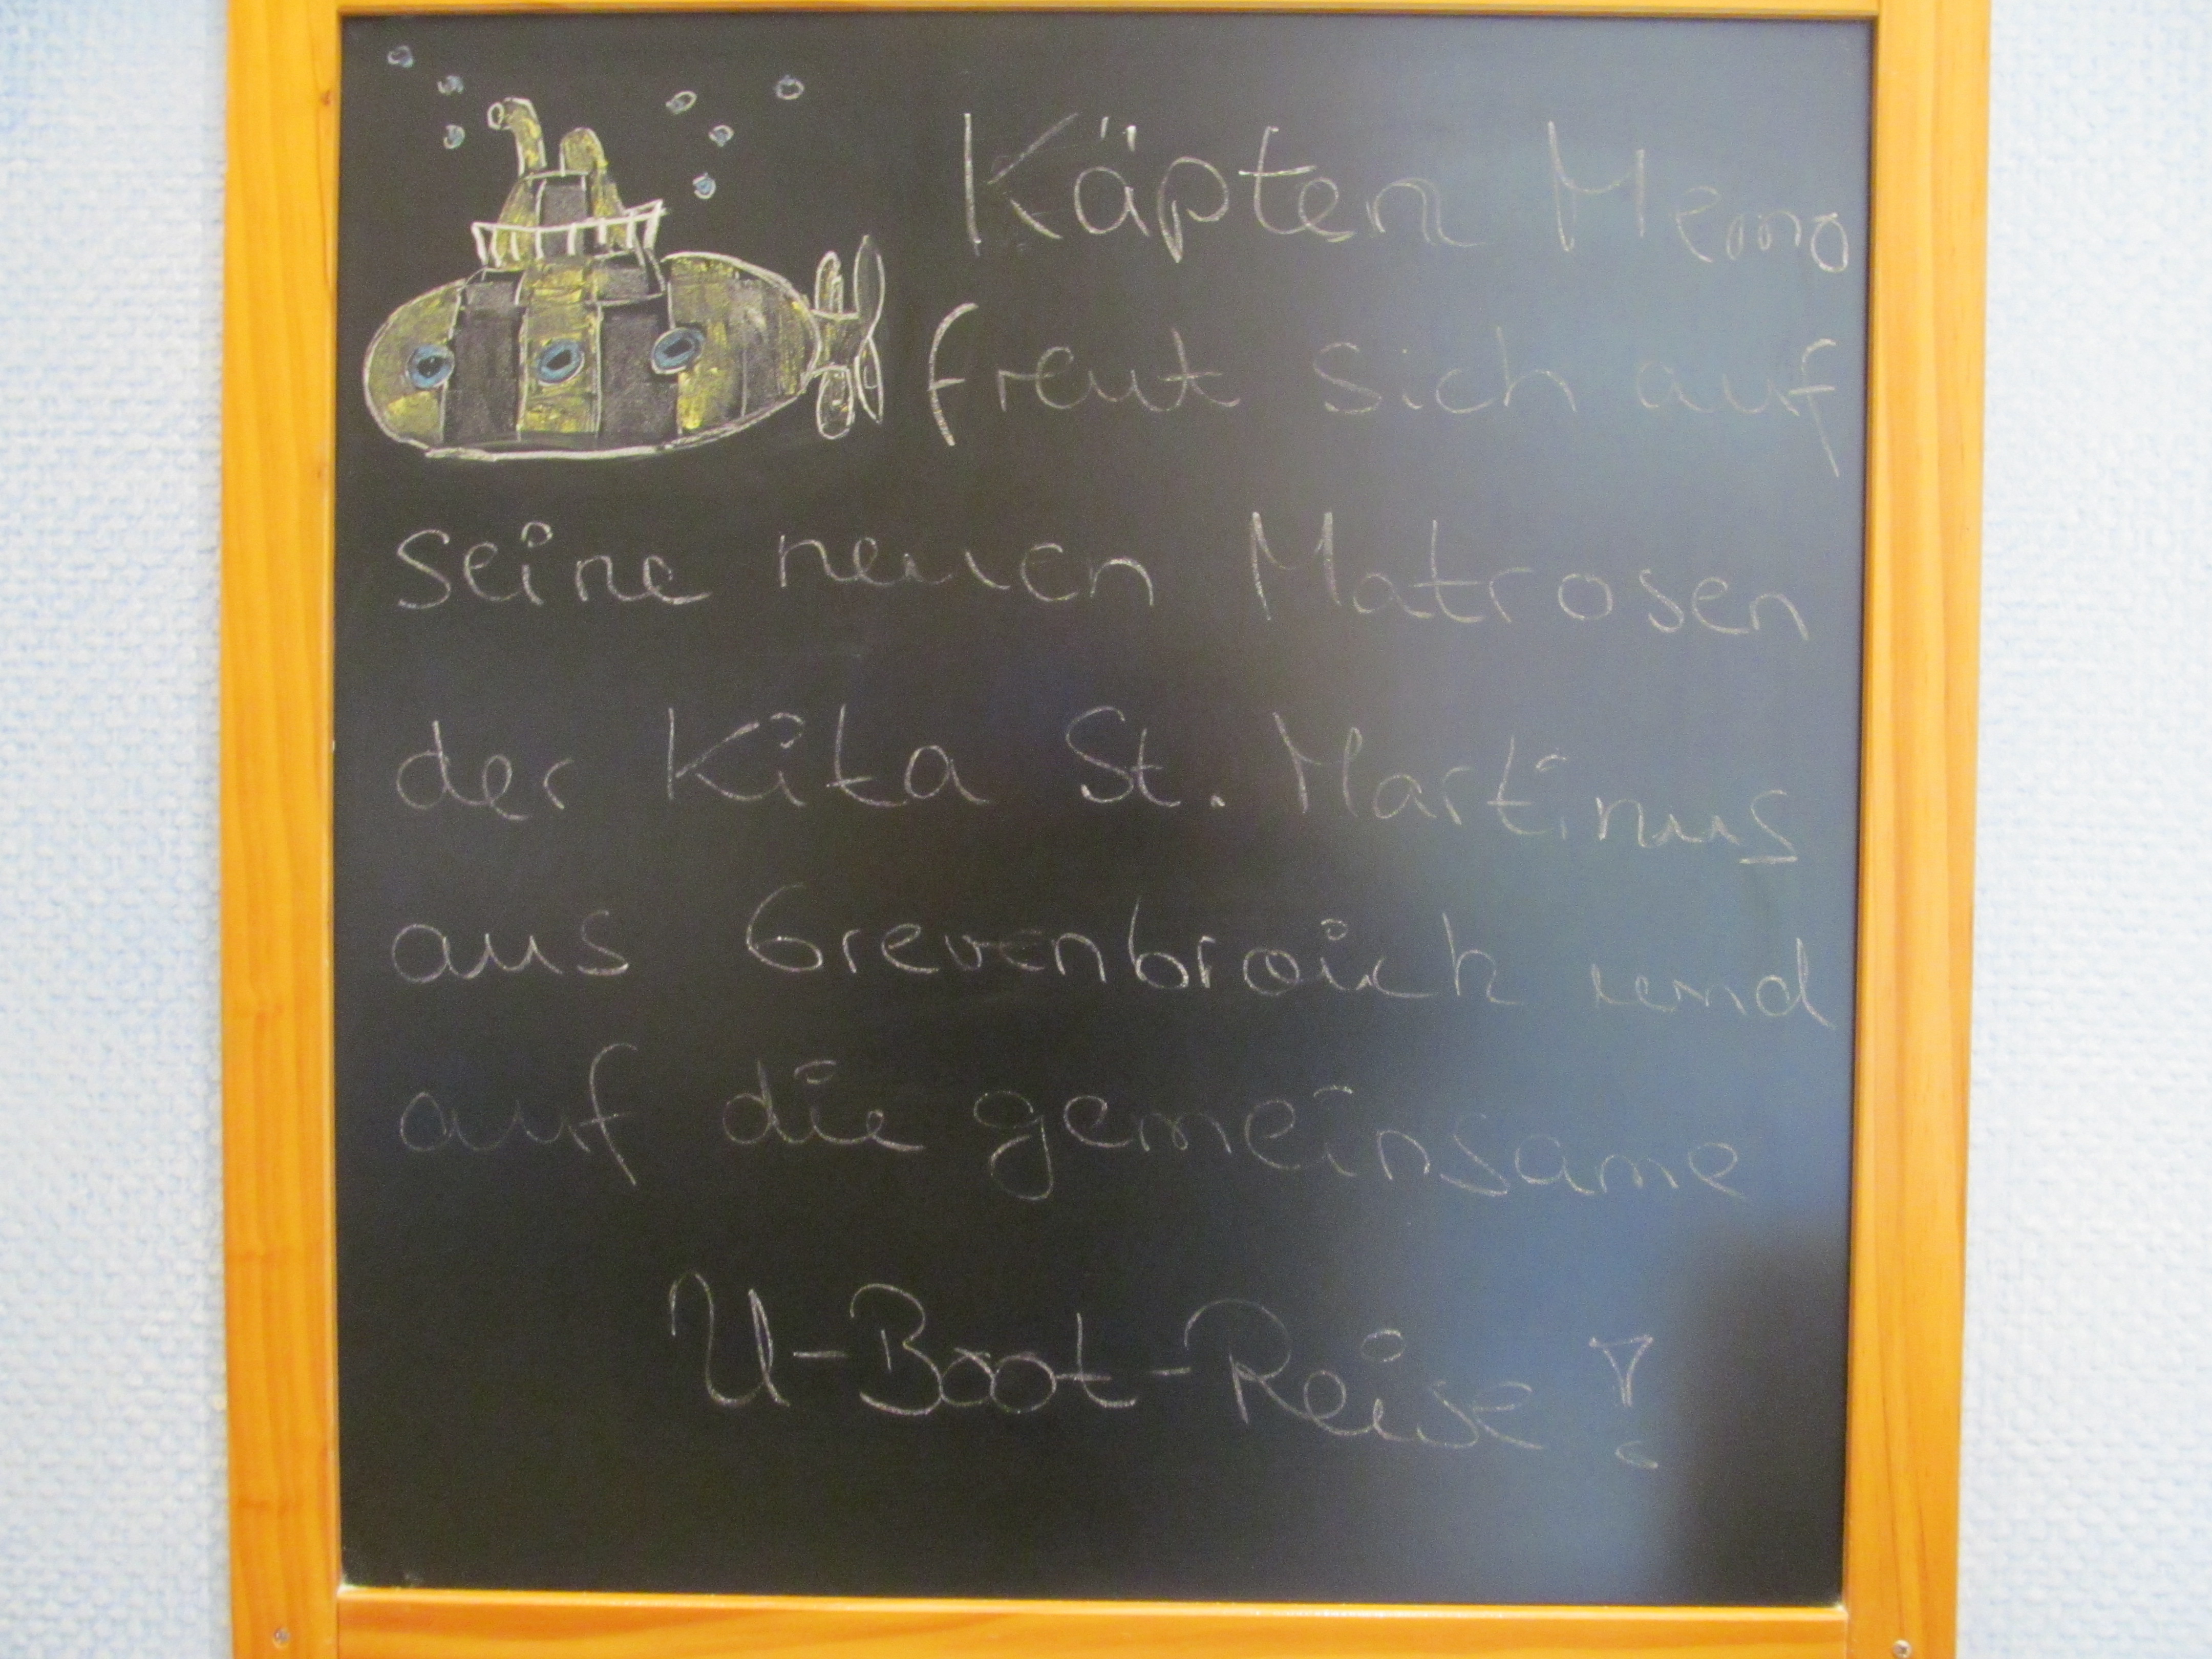 Käpten Memo
freut sich auf
seine neuen Matrosen
der Kita St. Martinus
aus Grevenbroich und
auf die gemeinsame
U-Boot-Reise!